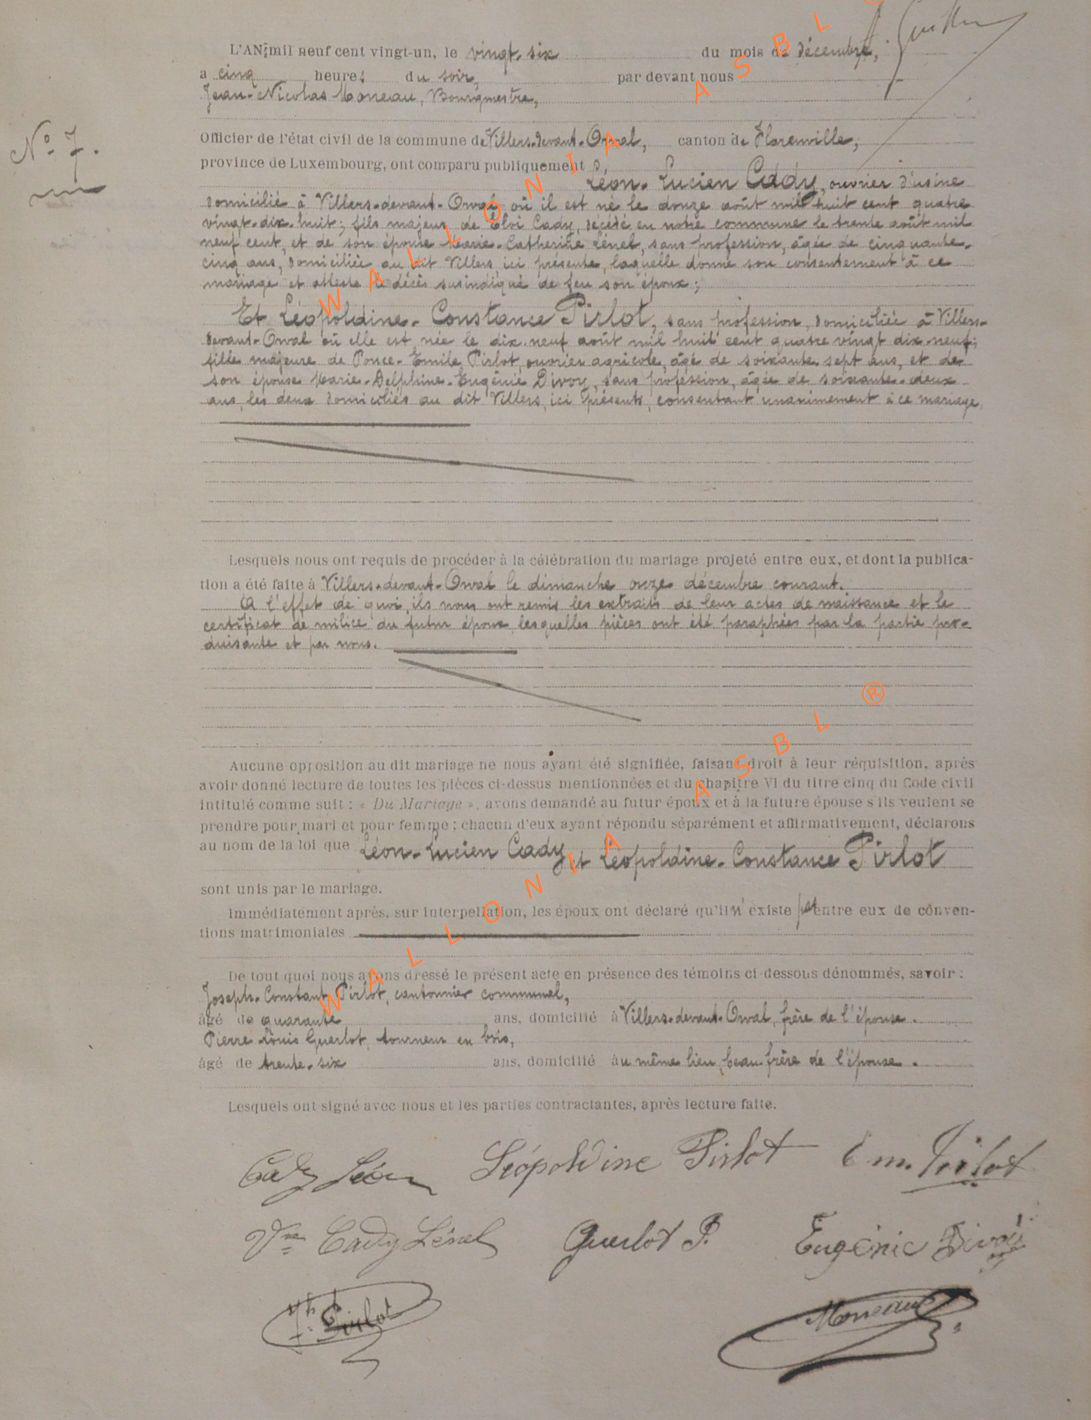 L'AN mil neuf cent vingt-un, le vingt six du mois de décembre,
a cinq heures du soir, par devant nous
Jean-Nicolas Moreau, Bourgmestre,
Nº 7.
Officier de l'état civil de la commune de Villers-devant-Orval, canton de Florenville,
province de Luxembourg, ont comparu publiquement
Léon-Lucien Cady, ouvrier d'usine
domicilié à Villers-devant-Orval où il est né le douze août mil huit cent quatre
vingt-dix-huit; fils majeur de Eloi Cady, décédé en notre commune le trente août mil
neuf cent, et de son épouse Marie-Catherine Lénel, sans profession, âgée de cinquante-
cinq ans, domiciliée au dit Villers, ici présente, laquelle donne son consentement à ce
mariage et atteste le décès susindiqué de feu son époux;
Et Léopoldine-Constance Pirlot, sans profession, domiciliée à Villers-
devant-Orval où elle est née le dix-neuf août mil huit cent quatre vingt dix-neuf;
fille majeure de Ponce-Emile Pirlot, ouvrier agricole, âgé de soixante sept ans, et de
son épouse Marie-Delphine-Eugénie Divoy, sans profession, âgée de soixante-deux
ans, les deux domiciliés au dit Villers, ici présents, consentant unanimement à ce mariage
Lesquels nous ont requis de procéder à la célébration du mariage projeté entre eux, et dont la publica-
tion a été faite à Villers-devant-Orval le dimanche onze décembre courant.
A l'effet de quoi, ils nous ont remis les extraits de leur actes de naissance et le
certificat de milice du futur époux, lesquelles pièces ont été paraphées par la partie pro-
duisante et par nous.
Aucune opposition au dit mariage ne nous ayant été signifiée, faisant droit à leur réquisition, après
avoir donné lecture de toutes les pièces ci-dessus mentionnées et du chapitre VI du titre cinq du Code civil
intitulé comme suit : « Du Mariage », avons demandé au futur époux et à la future épouse s'ils veulent se
prendre pour mari et pour femme ; chacun d'eux ayant répondu séparément et affirmativement, déclarons
au nom de la loi que Léon-Lucien Cady et Léopoldine-Constance Pirlot
sont unis par le mariage.
Immédiatement après, sur interpellation, les époux ont déclaré qu'il n'existe pas entre eux de conven-
tions matrimoniales
De tout quoi nous avons dressé le présent acte en présence des témoins ci-dessous dénommés, savoir :
Joseph-Constant Pirlot, cantonnier communal,
âgé de quarante ans, domicilié à Villers-devant-Orval, frère de l'épouse.
Pierre Louis Guerlot, tourneur en bois,
âgé de trente-six ans, domicilié au même lieu, beau frère de l'épouse.
Lesquels ont signé avec nous et les parties contractantes, après lecture faite.
Cady Léon Léopoldine Pirlot Em. Pirlot
Vve Cady Lénel Guerlot P. Eugénie Divoy
Jh Pirlot Moreau
WALLONIA ASBL
WALLONIA ASBL ®